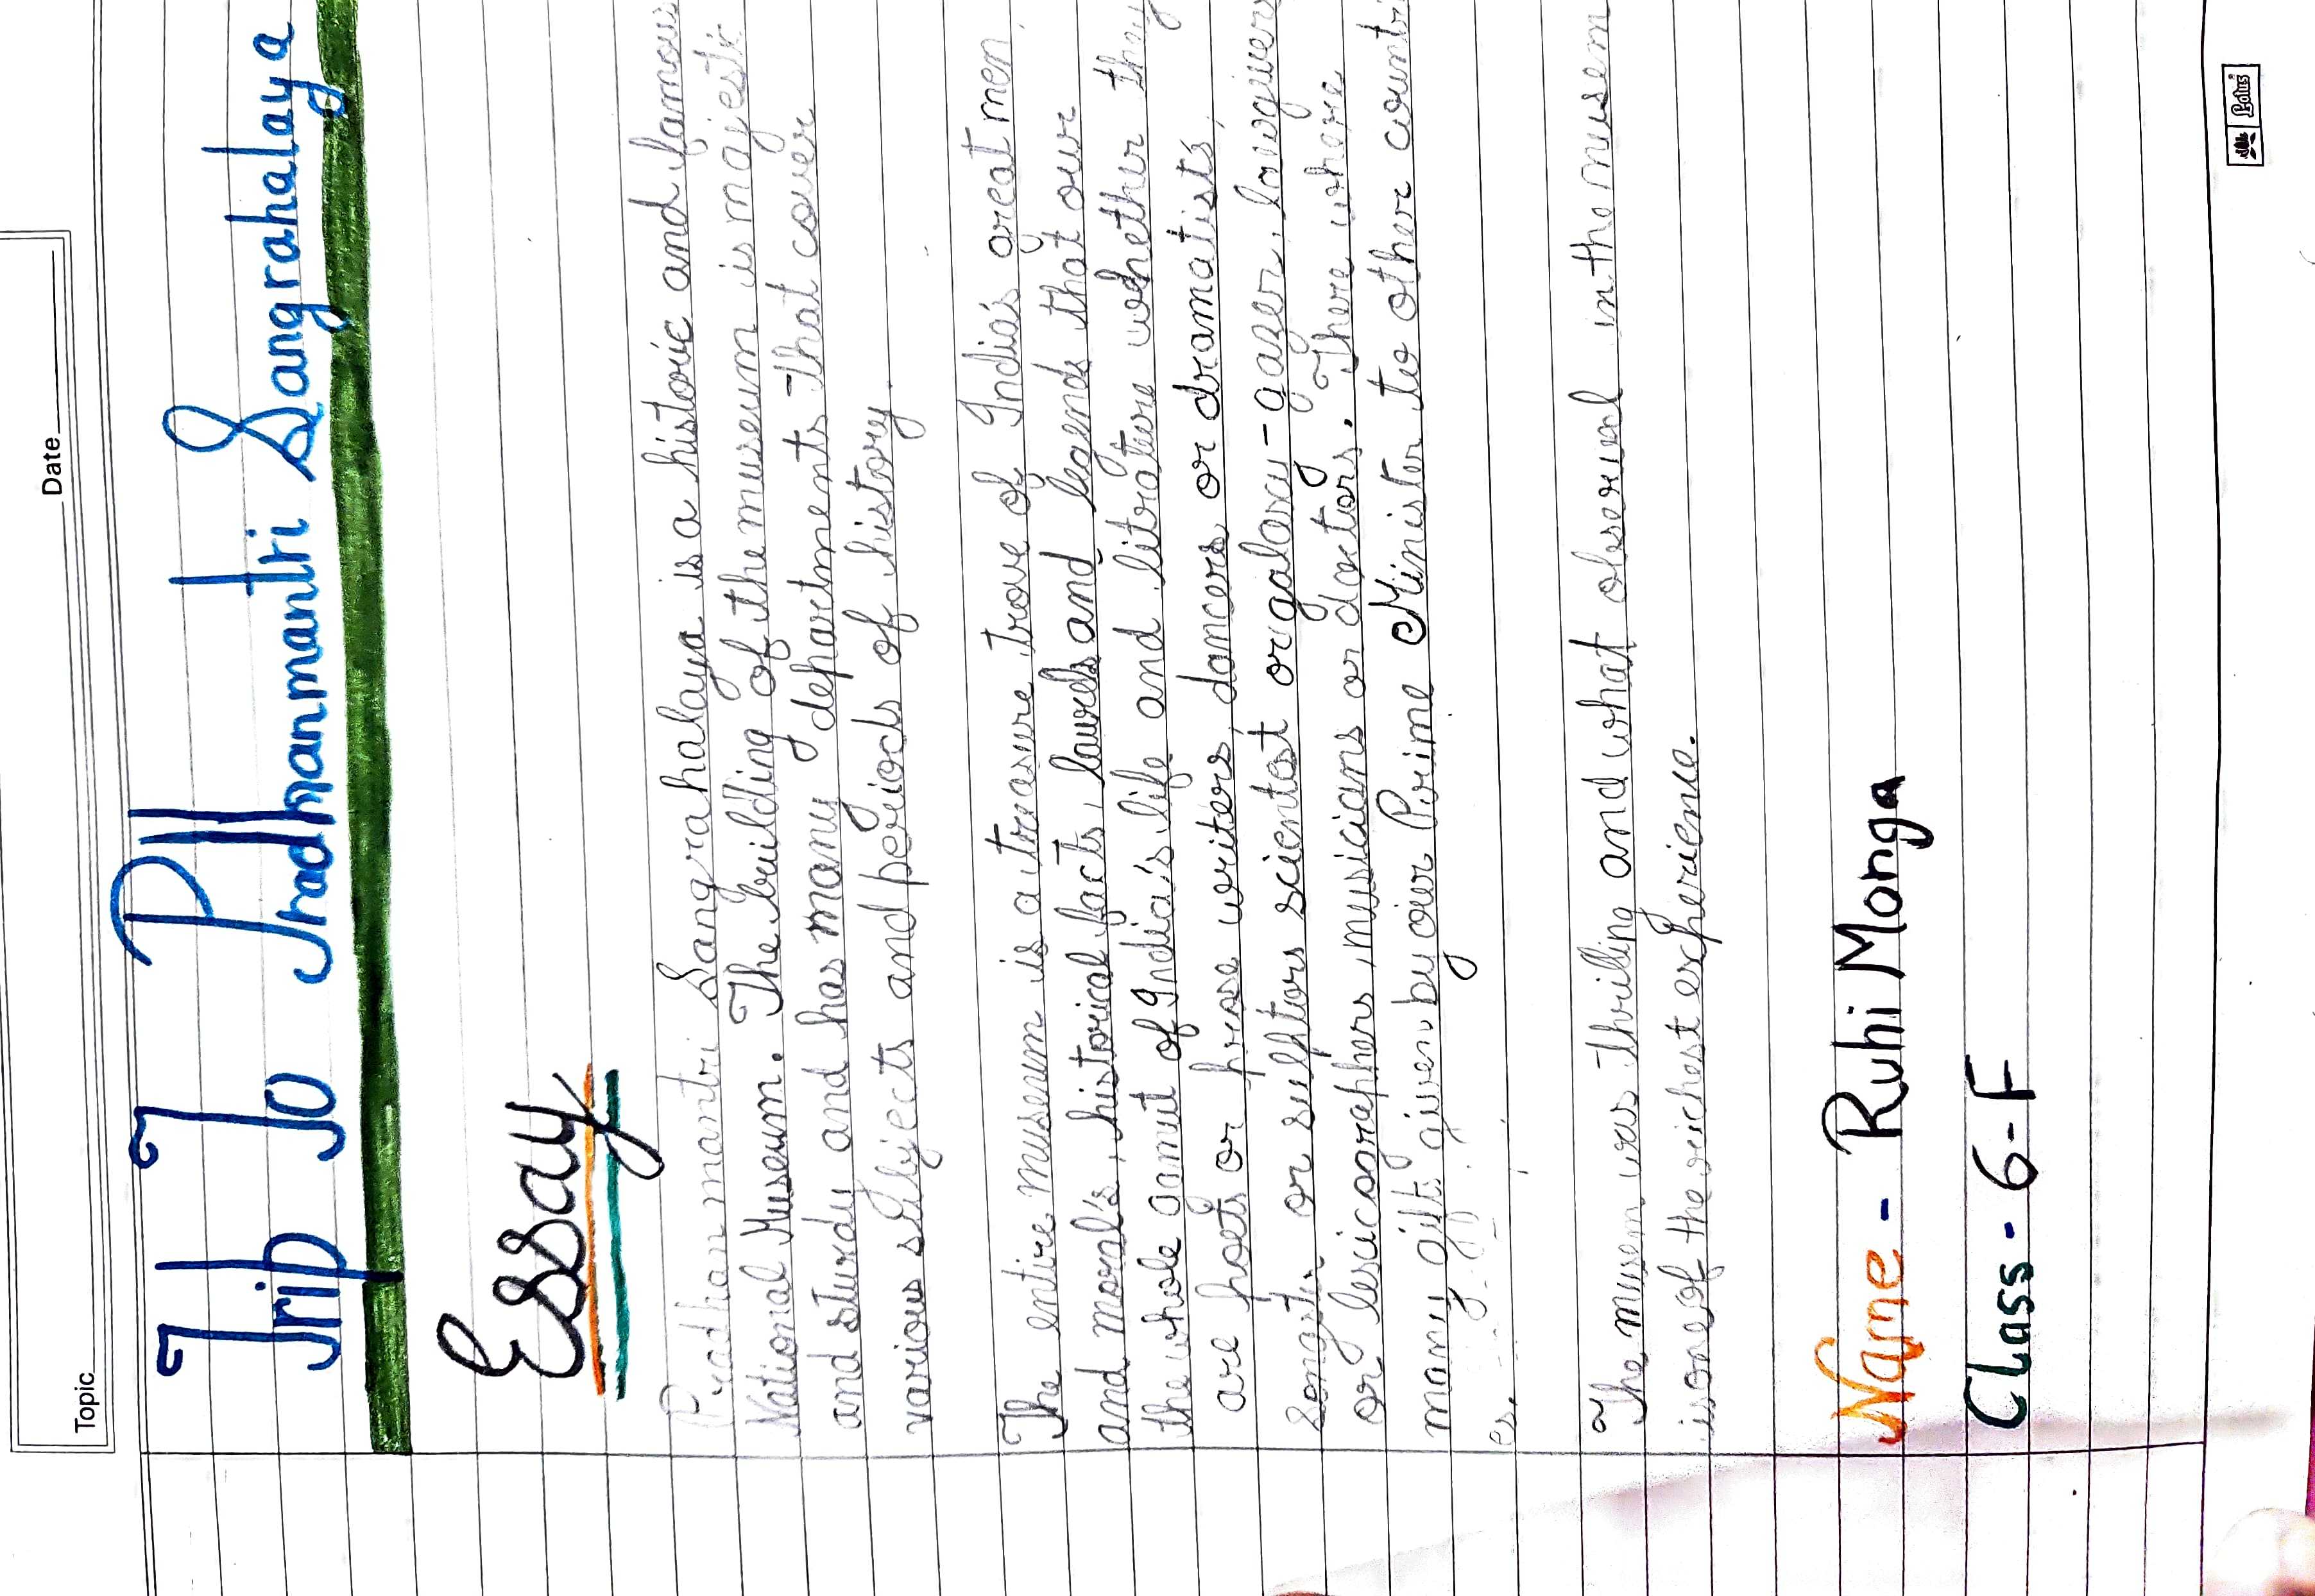 Topic
Date
Trip To Pradhanmantri Sangrahalaya
Essay
Pradhan mantri Sangrahalaya is a historic and famous
National Museum. The building of the museum is majestic
and sturdy and has many departments that cover
various subjects and periods of history.
The entire museum is a treasure trove of India's great men
and moral's, historical facts, laurels and legends that our
the whole amut of India's life and litrature whether they
are poets or prose writers, dancers or dramatists,
songster or sulptors scientest or galaxy-gazer, lawgivers
or lexicographers, musicians or doctors. There where
many gifts given by our Prime Minister to other countri
es.
The musem was thrilling and what observed in the musem
is one of the richest experience.
Name - Ruhi Monga
Class - 6-F
Lotus